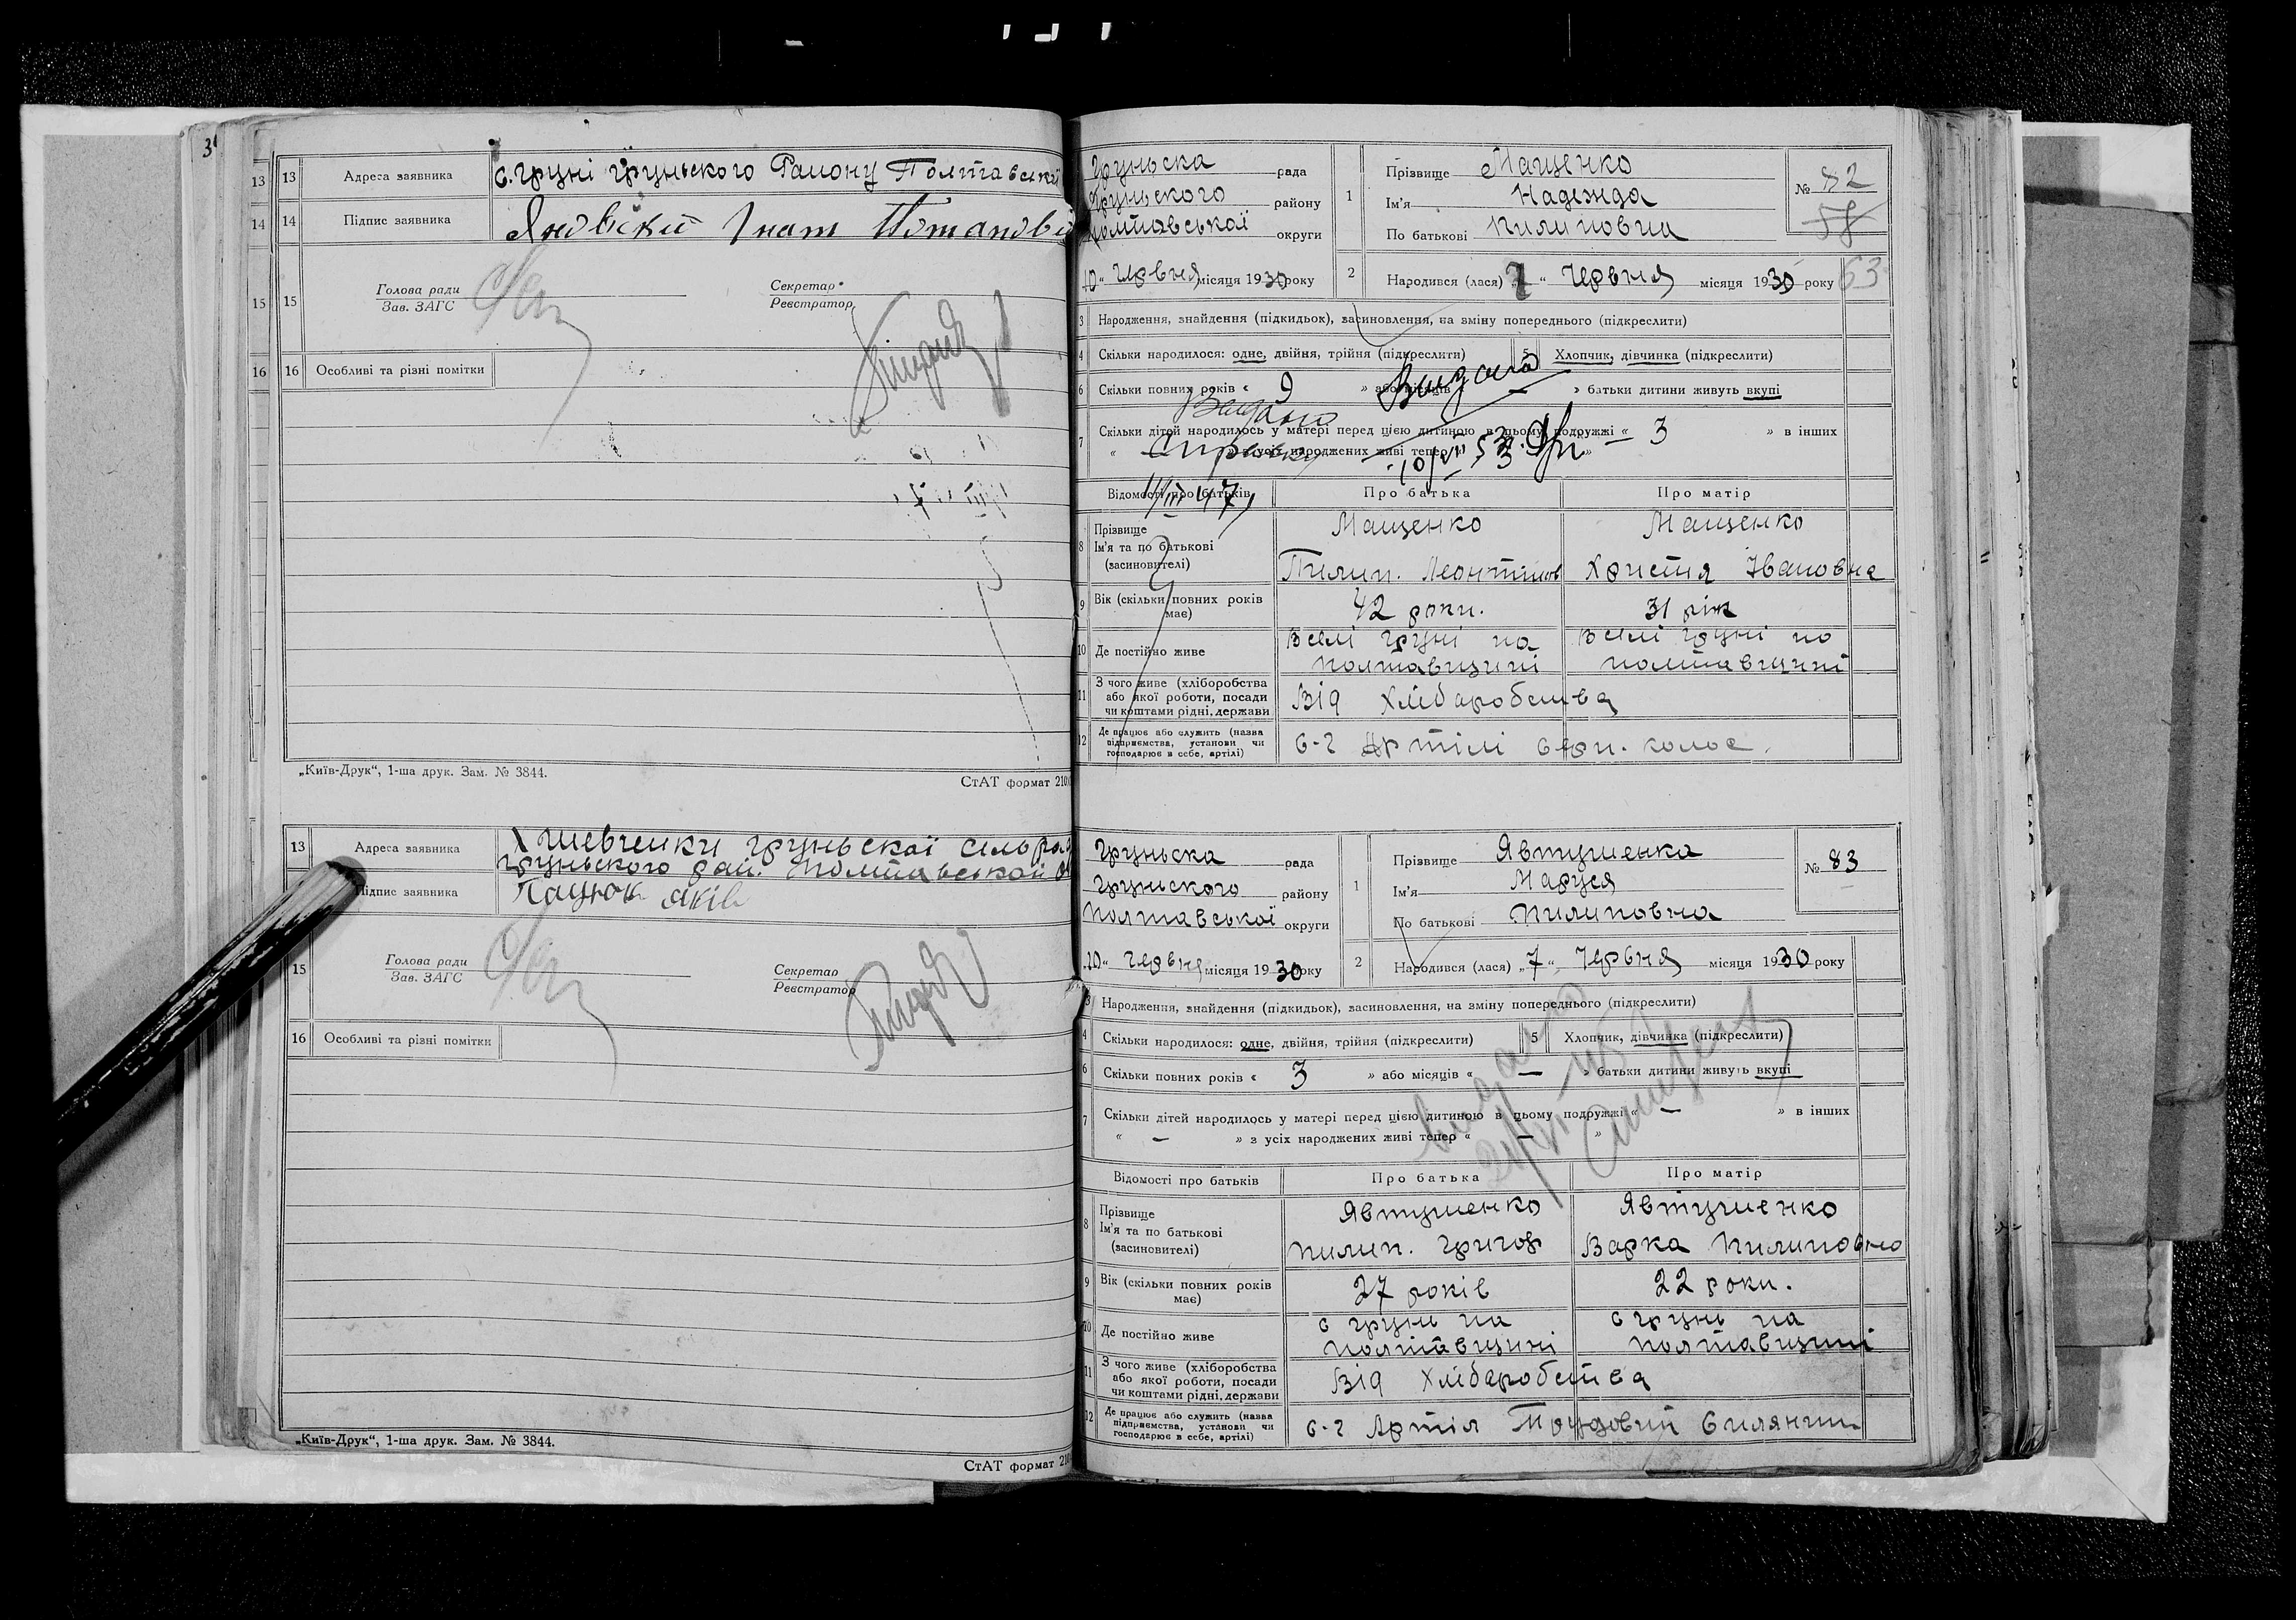 13 13 Адреса заявника с. Груні Груньского Району Полтавськи
14 14 Підпис заявника Яновский Гнат Потапові
15 15 Голова ради
Зав. ЗАГС
Секретар
Реєстратор
16 16 Особливі та різні помітки
„Київ-Друк“, 1-ша друк. Зам. № 3844.
СтАТ формат 210
13 Адреса заявника Х Шевченки Груньскої сельрад
Груньского рай. Полтавської
Підпис заявника Пацюк Яків
15 Голова ради
Зав. ЗАГС
Секретар
Реєстратор
16 Особливі та різні помітки
„Київ-Друк“, 1-ша друк. Зам. № 3844.
СтАТ формат 210
Груньска рада
Груньского району
Полтавської округи
10 “ Червня місяця 1930 року
1 Прізвище Мащенко
Ім'я Надежда
По батькові Пилиповна
№ 82
58
63
2 Народився (лася) „7“ Червня місяця 1930 року
3 Народження, знайдення (підкидьок), засиновлення, на зміну попереднього (підкреслити)
4 Скільки народилося: одне, двійня, трійня (підкреслити) 5 Хлопчик, дівчинка (підкреслити)
6 Скільки повних років « 9 » або місяців « — » батьки дитини живуть вкупі
Видано
7 Скільки дітей народилось у матері перед цією дитиною в цьому подружжі « 3 » в інших
« — » з усіх народжених живі тепер « 3 »
Видано
справку
11/III 47
Відомості про батьків Про батька Про матір
8 Прізвище
Ім'я та по батькові
(засиновителі)
Мащенко Мащенко
Пилип. Леонтійов Христя Івановна
9 Вік (скільки повних років має) 42 роки. 31 рік
10 Де постійно живе В селі Груні на Полтавщині В селі Груні на Полтавщині
11 З чого живе (хліборобства або якої роботи, посади чи коштами рідні, держави Від Хлібаробства
12 Де працює або служить (назва підприємства, установи чи господарює в себе, артілі) С-г Артілі Серп. колос.
Груньска рада
Груньского району
Полтавської округи
10 “ Червня місяця 1930 року
1 Прізвище Явтушенка
Ім'я Маруся
По батькові Пилиповна
№ 83
2 Народився (лася) „7“ Червня місяця 1930 року
3 Народження, знайдення (підкидьок), засиновлення, на зміну попереднього (підкреслити)
4 Скільки народилося: одне, двійня, трійня (підкреслити) 5 Хлопчик, дівчинка (підкреслити)
6 Скільки повних років « 3 » або місяців « — » батьки дитини живуть вкупі
7 Скільки дітей народилось у матері перед цією дитиною в цьому подружжі « — » в інших
« — » з усіх народжених живі тепер « — »
Відомості про батьків Про батька Про матір
8 Прізвище
Ім'я та по батькові
(засиновителі)
Явтушенко Явтушенко
Пилип. Григор Варка Пилиповно
9 Вік (скільки повних років має) 27 років 22 роки.
10 Де постійно живе с Грунь на Полтавщині с Грунь на Полтавщині
11 З чого живе (хліборобства або якої роботи, посади чи коштами рідні, держави Від Хлібаробства
12 Де працює або служить (назва підприємства, установи чи господарює в себе, артілі) С-г Артіл Трудовий Силянин